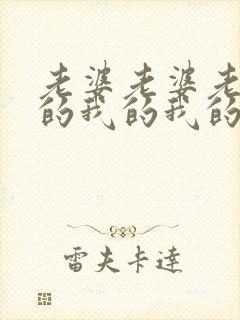 老婆老婆老
的我的我的
雷夫卡達